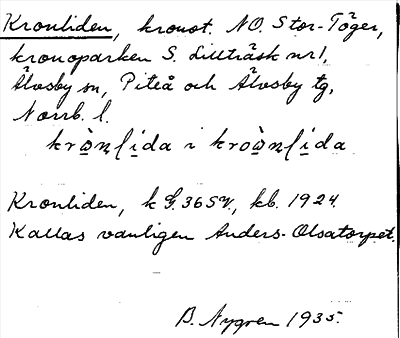 Kronliden, kronot. NO. Stor-Töger,
kronoparken S. Lillträsk nr 1,
Älvsby sn, Piteå och Älvsby tg,
Norrb. l.
i
Kronliden, k G. 365 V, kb. 1924.
Kallas vanligen Anders-Olsatorpet.
B. Nygren 1935.